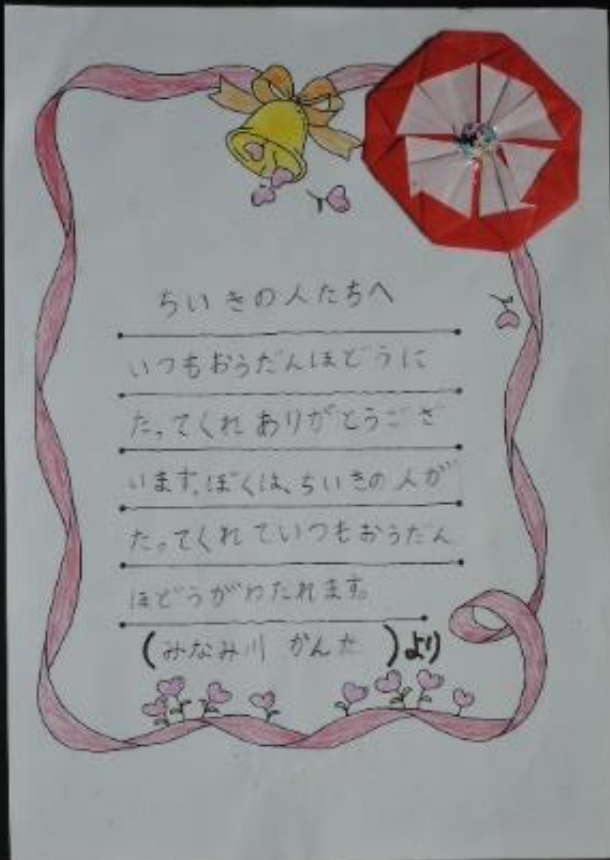 ちいきの人たちへ
いつもおうだんほどうに
たってくれありがとうござ
います。ぼくは、ちいきの人が
たってくれていつもおうだん
ほどうがわたれます。
(みなみ川 かんた)より